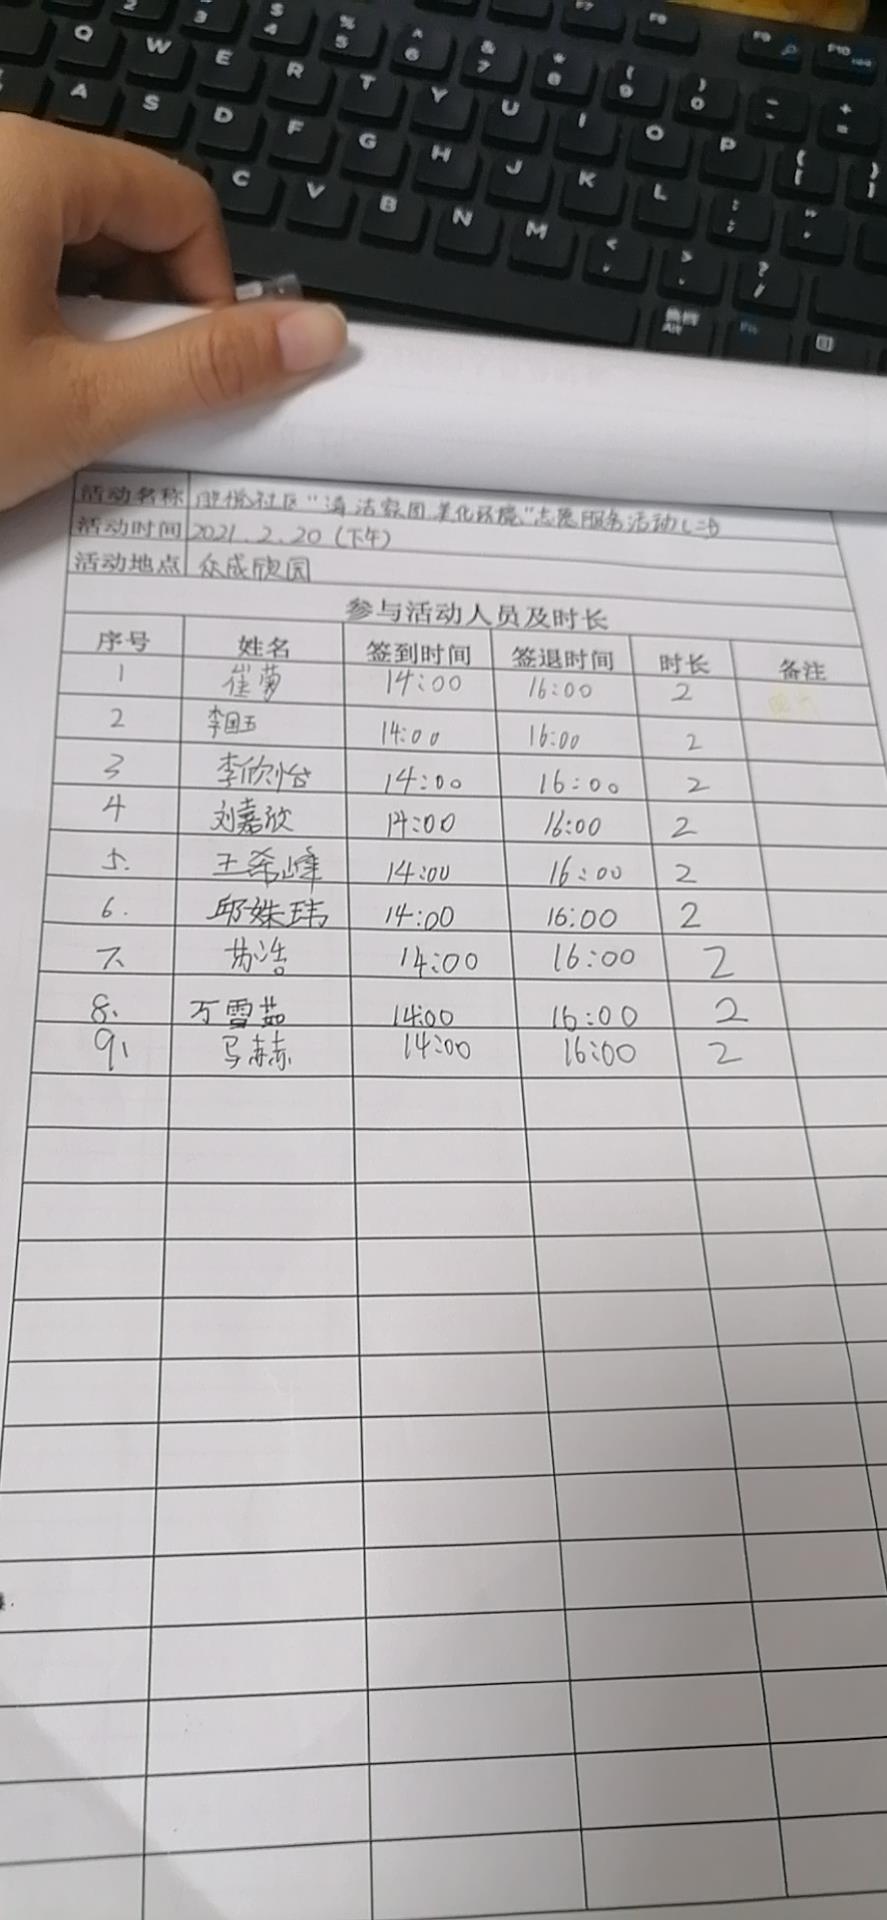 2 3 $ 4 % 5 ^ 6 & 7 * 8 ( 9 ) 0 - + =
F7 F8 F9 F10
Q W E R T Y U I O P { [ } ]
A S D F G H J K L : ; " '
C V B N M < , > . ? /
Alt Fn
活动名称 社区“清洁家园 美化环境”志愿服务活动
活动时间 2021.2.20(下午)
活动地点 众成欣园
参与活动人员及时长
序号 姓名 签到时间 签退时间 时长 备注
1 崔菊 14:00 16:00 2
2 李国五 14:00 16:00 2
3 李欣怡 14:00 16:00 2
4 刘嘉欣 14:00 16:00 2
5. 王希峰 14:00 16:00 2
6. 邱姝玮 14:00 16:00 2
7、 苏浩 14:00 16:00 2
8、 万雪茹 14:00 16:00 2
9、 马赫 14:00 16:00 2